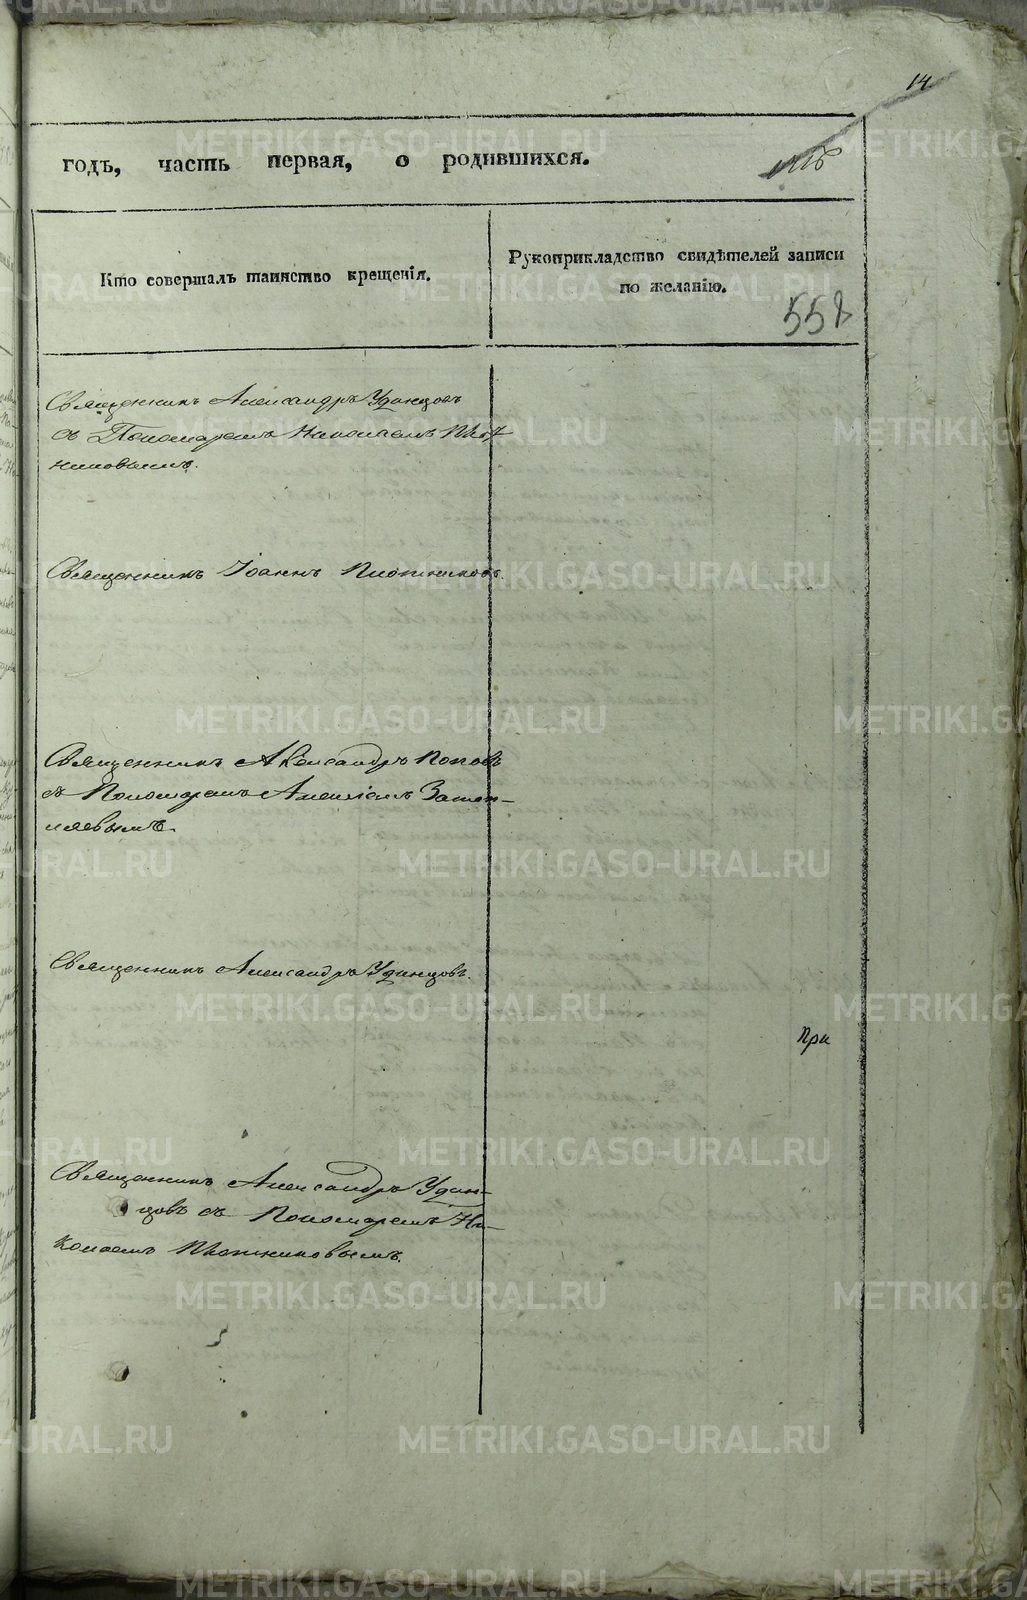 14
годъ, часть первая, о родившихся.
Кто совершалъ таинство крещенія.
Рукоприкладство свидѣтелей записи
по желанію.
558
Священникъ Александръ Удинцовъ
съ Пономаремъ Николаемъ Плот
никовымъ.
Священникъ Іоаннъ Плотниковъ.
Священникъ Александръ Поповъ
съ Пономаремъ Алексіемъ
Священникъ Александръ Удинцовъ.
При
Священникъ Александръ Удин-
цовъ съ Пономаремъ Ни-
колаемъ Плотниковымъ.
METRIKI.GASO-URAL.RU